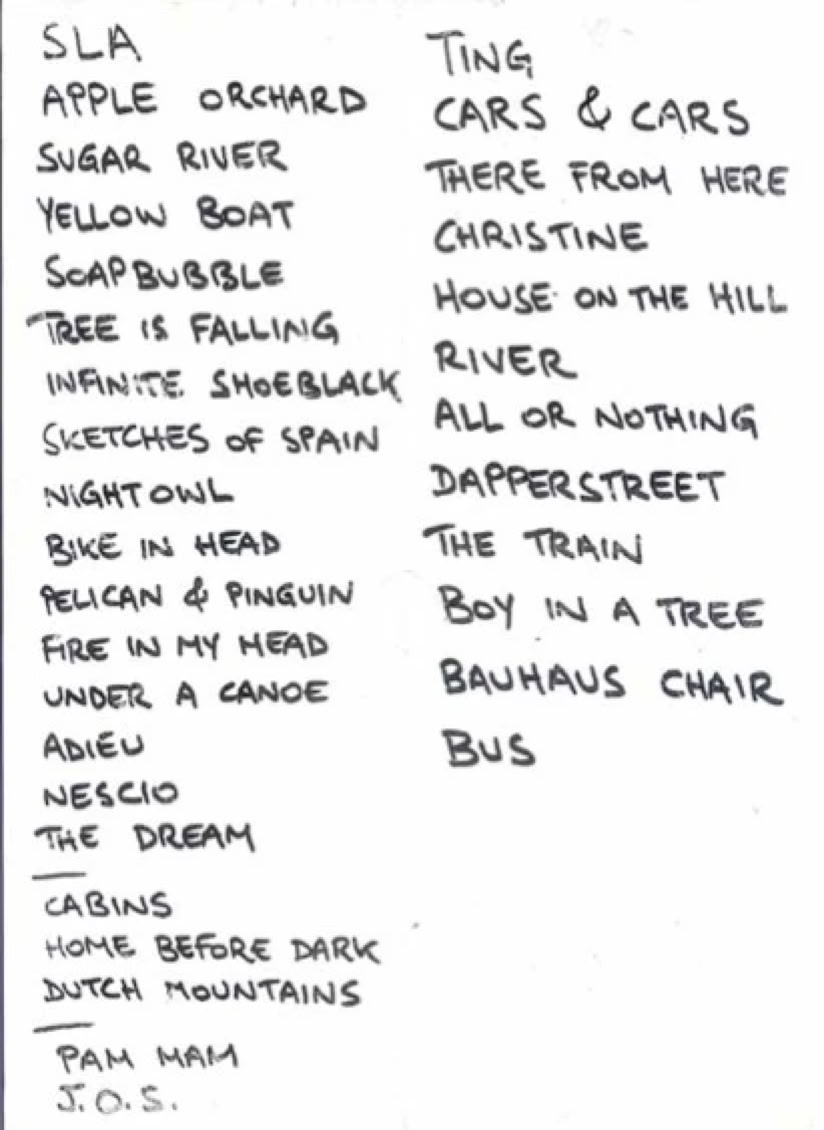 SLA
APPLE ORCHARD
SUGAR RIVER
YELLOW BOAT
SOAPBUBBLE
TREE IS FALLING
INFINITE SHOEBLACK
SKETCHES OF SPAIN
NIGHT OWL
BIKE IN HEAD
PELICAN & PINGUIN
FIRE IN MY HEAD
UNDER A CANOE
ADIEU
NESCIO
THE DREAM
CABINS
HOME BEFORE DARK
DUTCH MOUNTAINS
PAM MAM
J.O.S.
TING
CARS & CARS
THERE FROM HERE
CHRISTINE
HOUSE ON THE HILL
RIVER
ALL OR NOTHING
DAPPERSTREET
THE TRAIN
BOY IN A TREE
BAUHAUS CHAIR
BUS